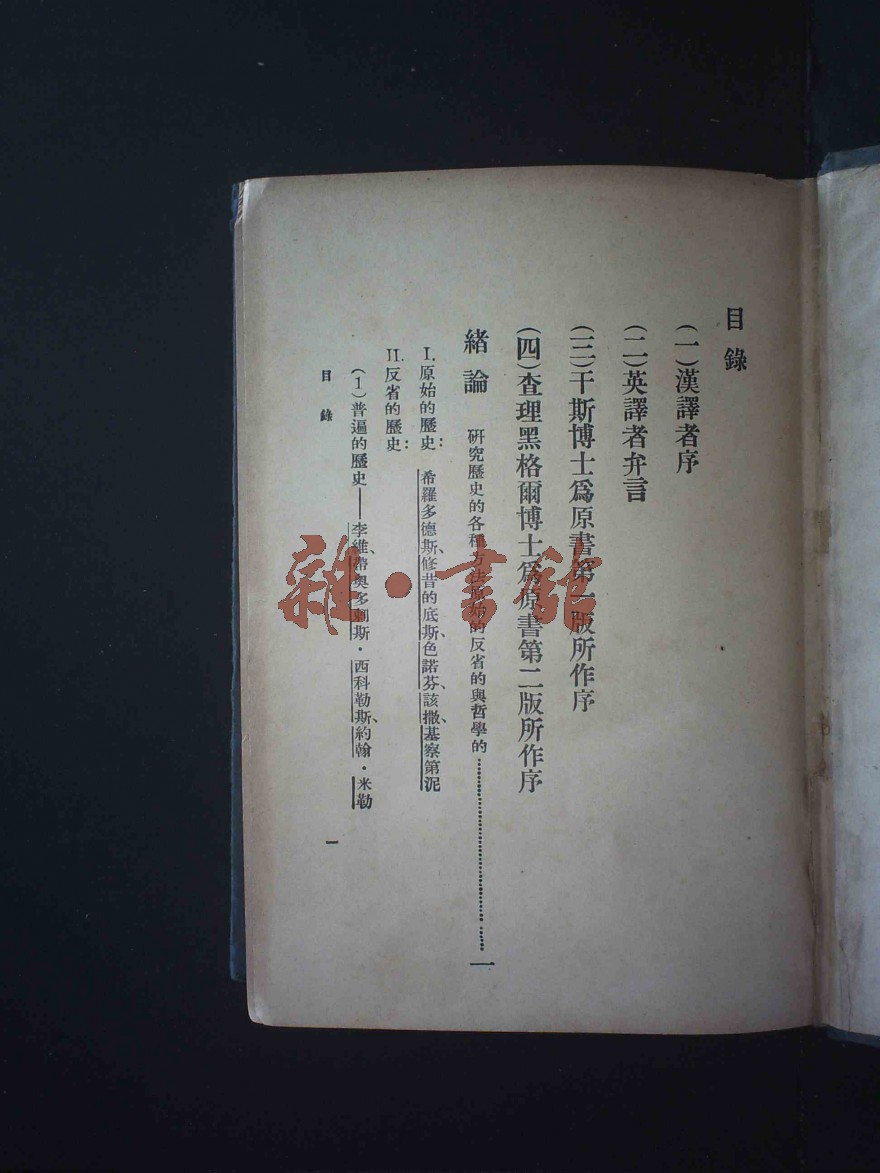 目錄
(一)漢譯者序
(二)英譯者弁言
(三)干斯博士爲原書第一版所作序
(四)查理黑格爾博士爲原書第二版所作序
緒論 研究歷史的各種方法原始的反省的與哲學的……………………一
I. 原始的歷史: 希羅多德斯、修昔的底斯、色諾芬、該撒、基察第泥
II. 反省的歷史:
(1)普遍的歷史——李維、帶奧多剌斯·西科勒斯、約翰·米勒
目錄
一
雜·書館